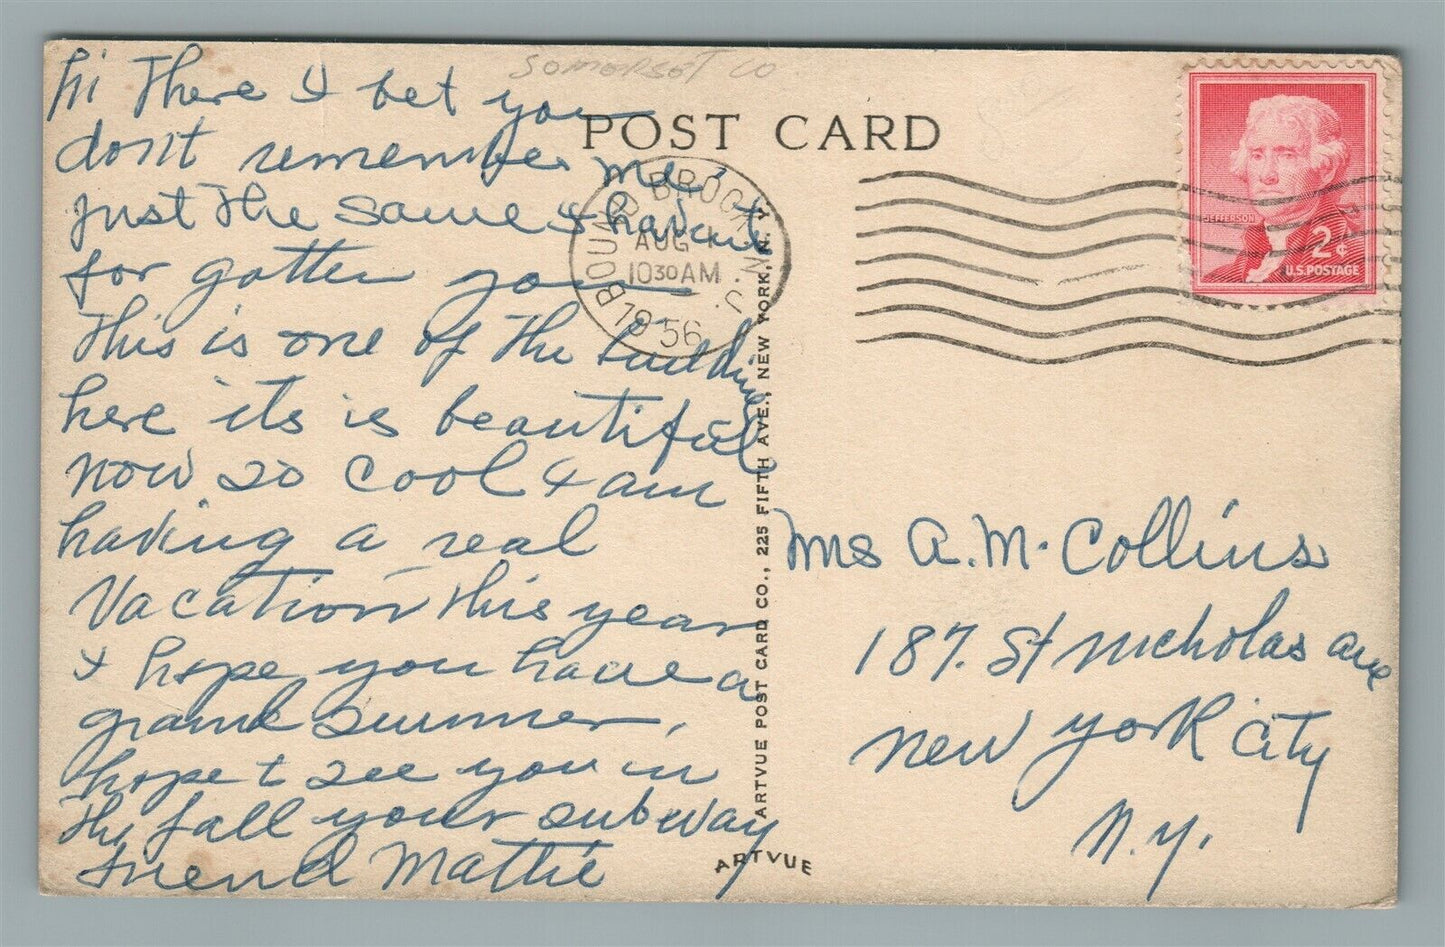 SOMERSET CO
POST CARD
hi There I bet you
don't remember me,
just The same I havent
for gotten you
This is one of The building
here its is beautiful
now so cool & am
having a real
Vacation This year
I hope you have a
grand summer,
hope t see you in
The fall your subway
friend Mattie
BOUND BROOK, N.J.
AUG 1
1030 AM
1956
JEFFERSON
2¢
U.S. POSTAGE
ARTVUE POST CARD CO., 225 FIFTH AVE., NEW YORK, N. Y.
ARTVUE
Mrs A. M. Collins
187. St Nicholas ave
New York City
N. Y.